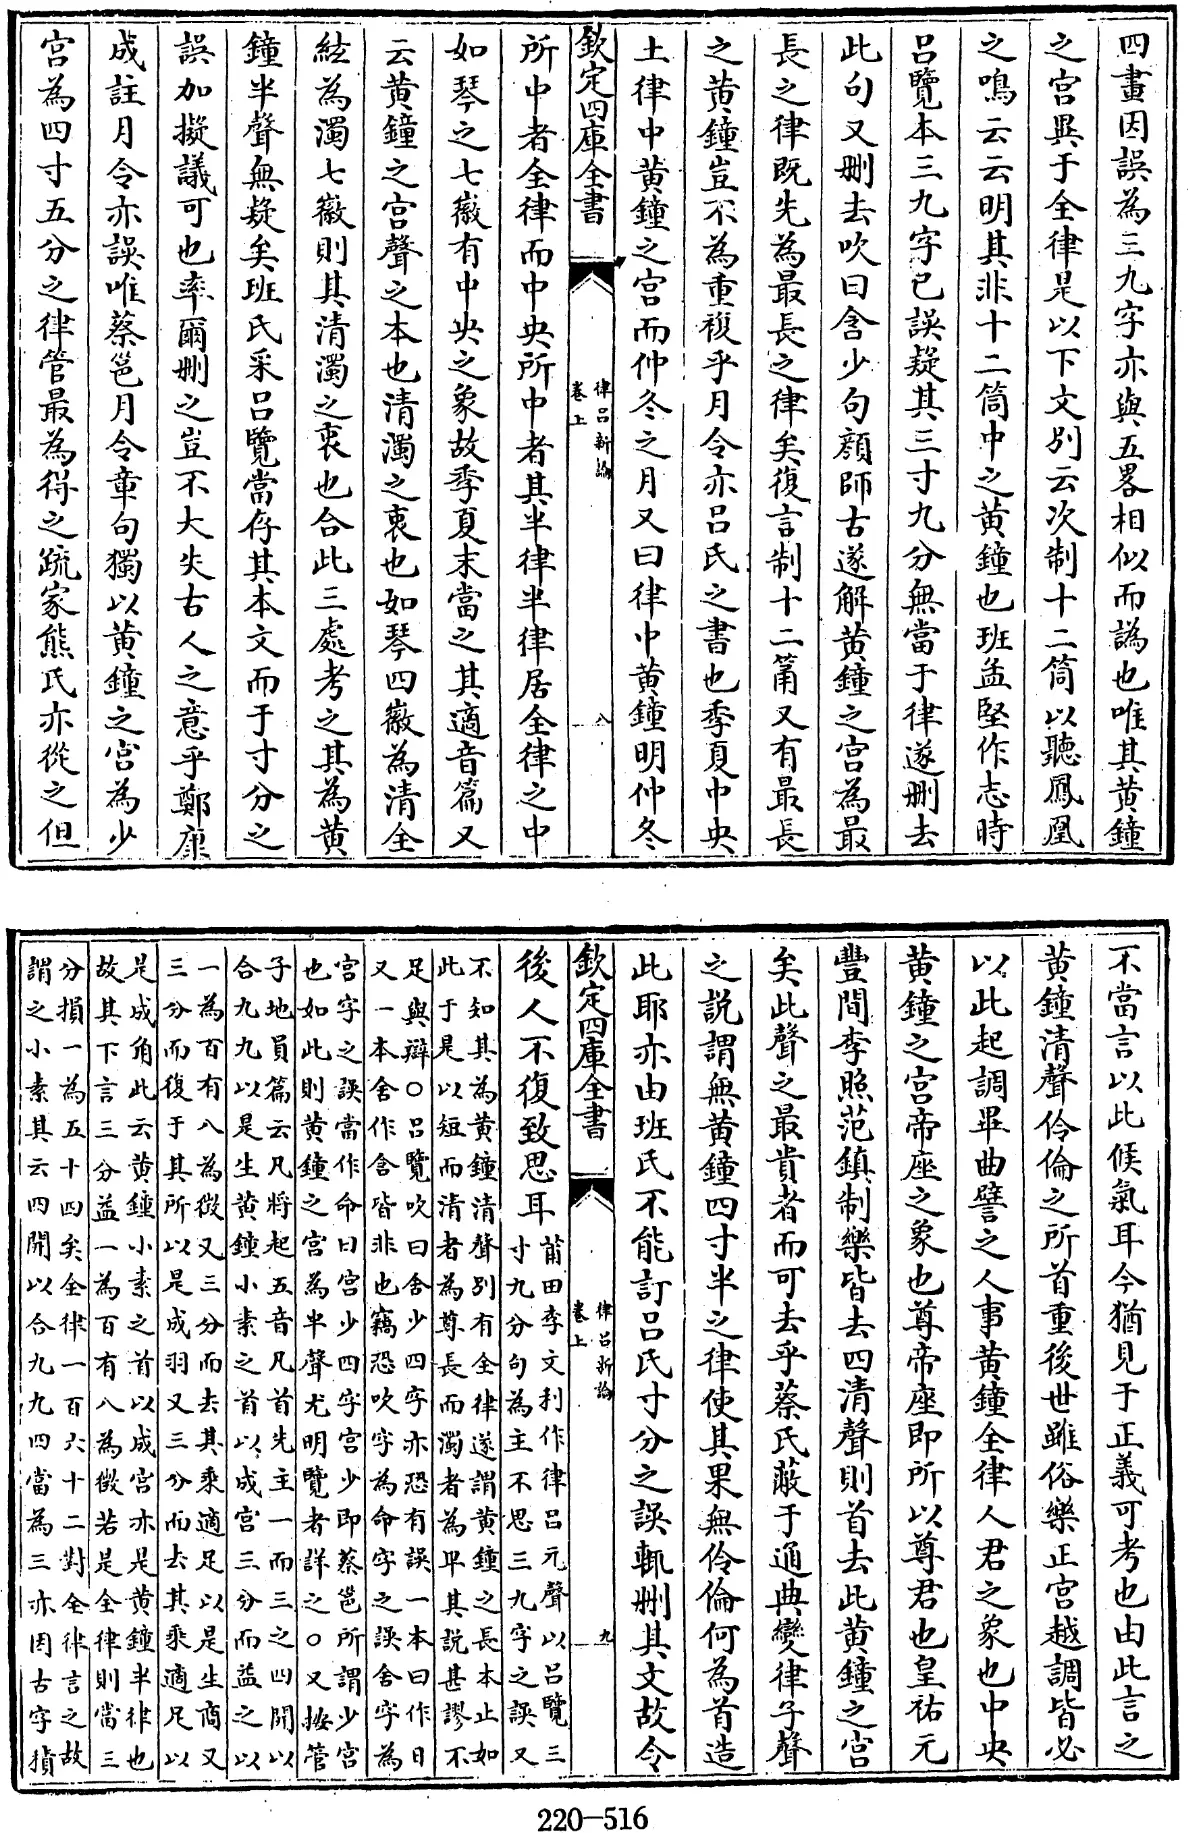 四畫因誤為三九字亦與五畧相似而譌也唯其黄鐘
之宫異于全律是以下文別云次制十二筒以聽鳳凰
之鳴云云明其非十二筒中之黄鐘也班孟堅作志時
吕覽本三九字已誤疑其三寸九分無當于律遂刪去
此句又刪去吹曰含少句顔師古遂解黄鐘之宫為最
長之律既先為最長之律矣復言制十二筩又有最長
之黄鐘豈不為重複乎月令亦吕氏之書也季夏中央
土律中黄鐘之宫而仲冬之月又曰律中黄鐘明仲冬
欽定四庫全書
律吕新論
卷上
八
所中者全律而中央所中者其半律半律居全律之中
如琴之七徽有中央之象故季夏末當之其適音篇又
云黄鐘之宫聲之本也清濁之衷也如琴四徽為清全
絃為濁七徽則其清濁之衷也合此三處考之其為黄
鐘半聲無疑矣班氏采吕覽當存其本文而于寸分之
誤加擬議可也率爾刪之豈不大失古人之意乎鄭康
成註月令亦誤唯蔡邕月令章句獨以黄鐘之宫為少
宫為四寸五分之律管最為得之疏家熊氏亦從之但
不當言以此候氣耳今猶見于正義可考也由此言之
黄鐘清聲伶倫之所首重後世雖俗樂正宫越調皆必
以此起調畢曲譬之人事黄鐘全律人君之象也中央
黄鐘之宫帝座之象也尊帝座即所以尊君也皇祐元
豐間李照范鎮制樂皆去四清聲則首去此黄鐘之宫
矣此聲之最貴者而可去乎蔡氏蔽于通典變律子聲
之説謂無黄鐘四寸半之律使其果無伶倫何為首造
此耶亦由班氏不能訂吕氏寸分之誤輒刪其文故令
欽定四庫全書
律吕新論
卷上
九
後人不復致思耳
莆田李文利作律吕元聲以吕覽三
寸九分句為主不思三九字之誤又
不知其為黄鐘清聲別有全律遂謂黄鐘之長本止如
此于是以短而清者為尊長而濁者為卑其説甚謬不
足與辯○吕覽吹曰舍少四字亦恐有誤一本曰作日
又一本舍作含皆非也竊恐吹字為命字之誤舍字為
宫字之誤當作命曰宫少四字宫少即蔡邕所謂少宫
也如此則黄鐘之宫為半聲尤明覽者詳之○又按管
子地員篇云凡將起五音凡首先主一而三之四開以
合九九以是生黄鐘小素之首以成宫三分而益之以
一為百有八為徴又三分而去其乘適足以是生商又
三分而復于其所以是成羽又三分而去其乘適足以
是成角此云黄鐘小素之首以成宫亦是黄鐘半律也
故其下言三分益一為百有八為徴若是全律則當三
分損一為五十四矣全律一百六十二對全律言之故
謂之小素其云四開以合九九四當為三亦因古字積